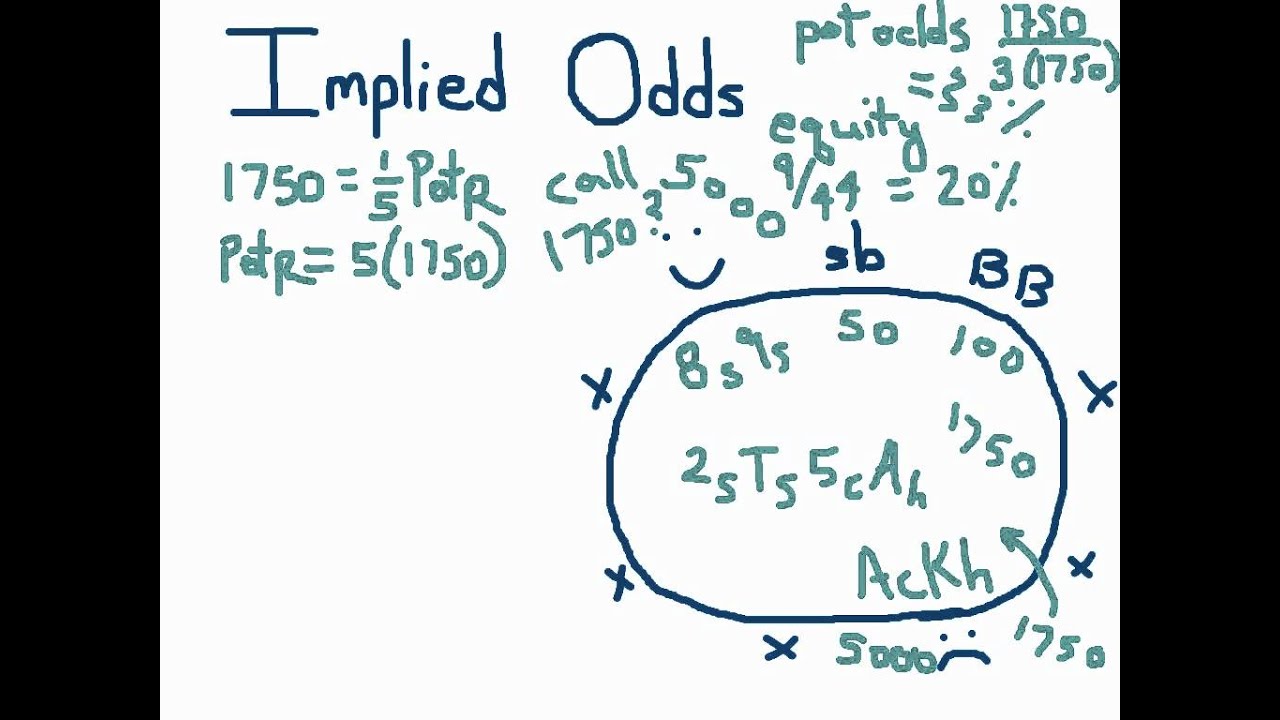 Implied Odds
pot odds 1750
3(1750)
= 33%
equity
9/44 = 20%
1750 = 1/5 PotR
PotR = 5(1750)
call 5000
1750?
sb BB
8s 9s 50 100
1750
2s Ts 5c Ah
AcKh
5000
1750
x
x
x
x
x